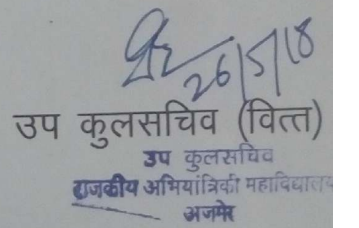 26/5/18
उप कुलसचिव (वित्त)
उप कुलसचिव
राजकीय अभियांत्रिकी महाविद्यालय
अजमेर